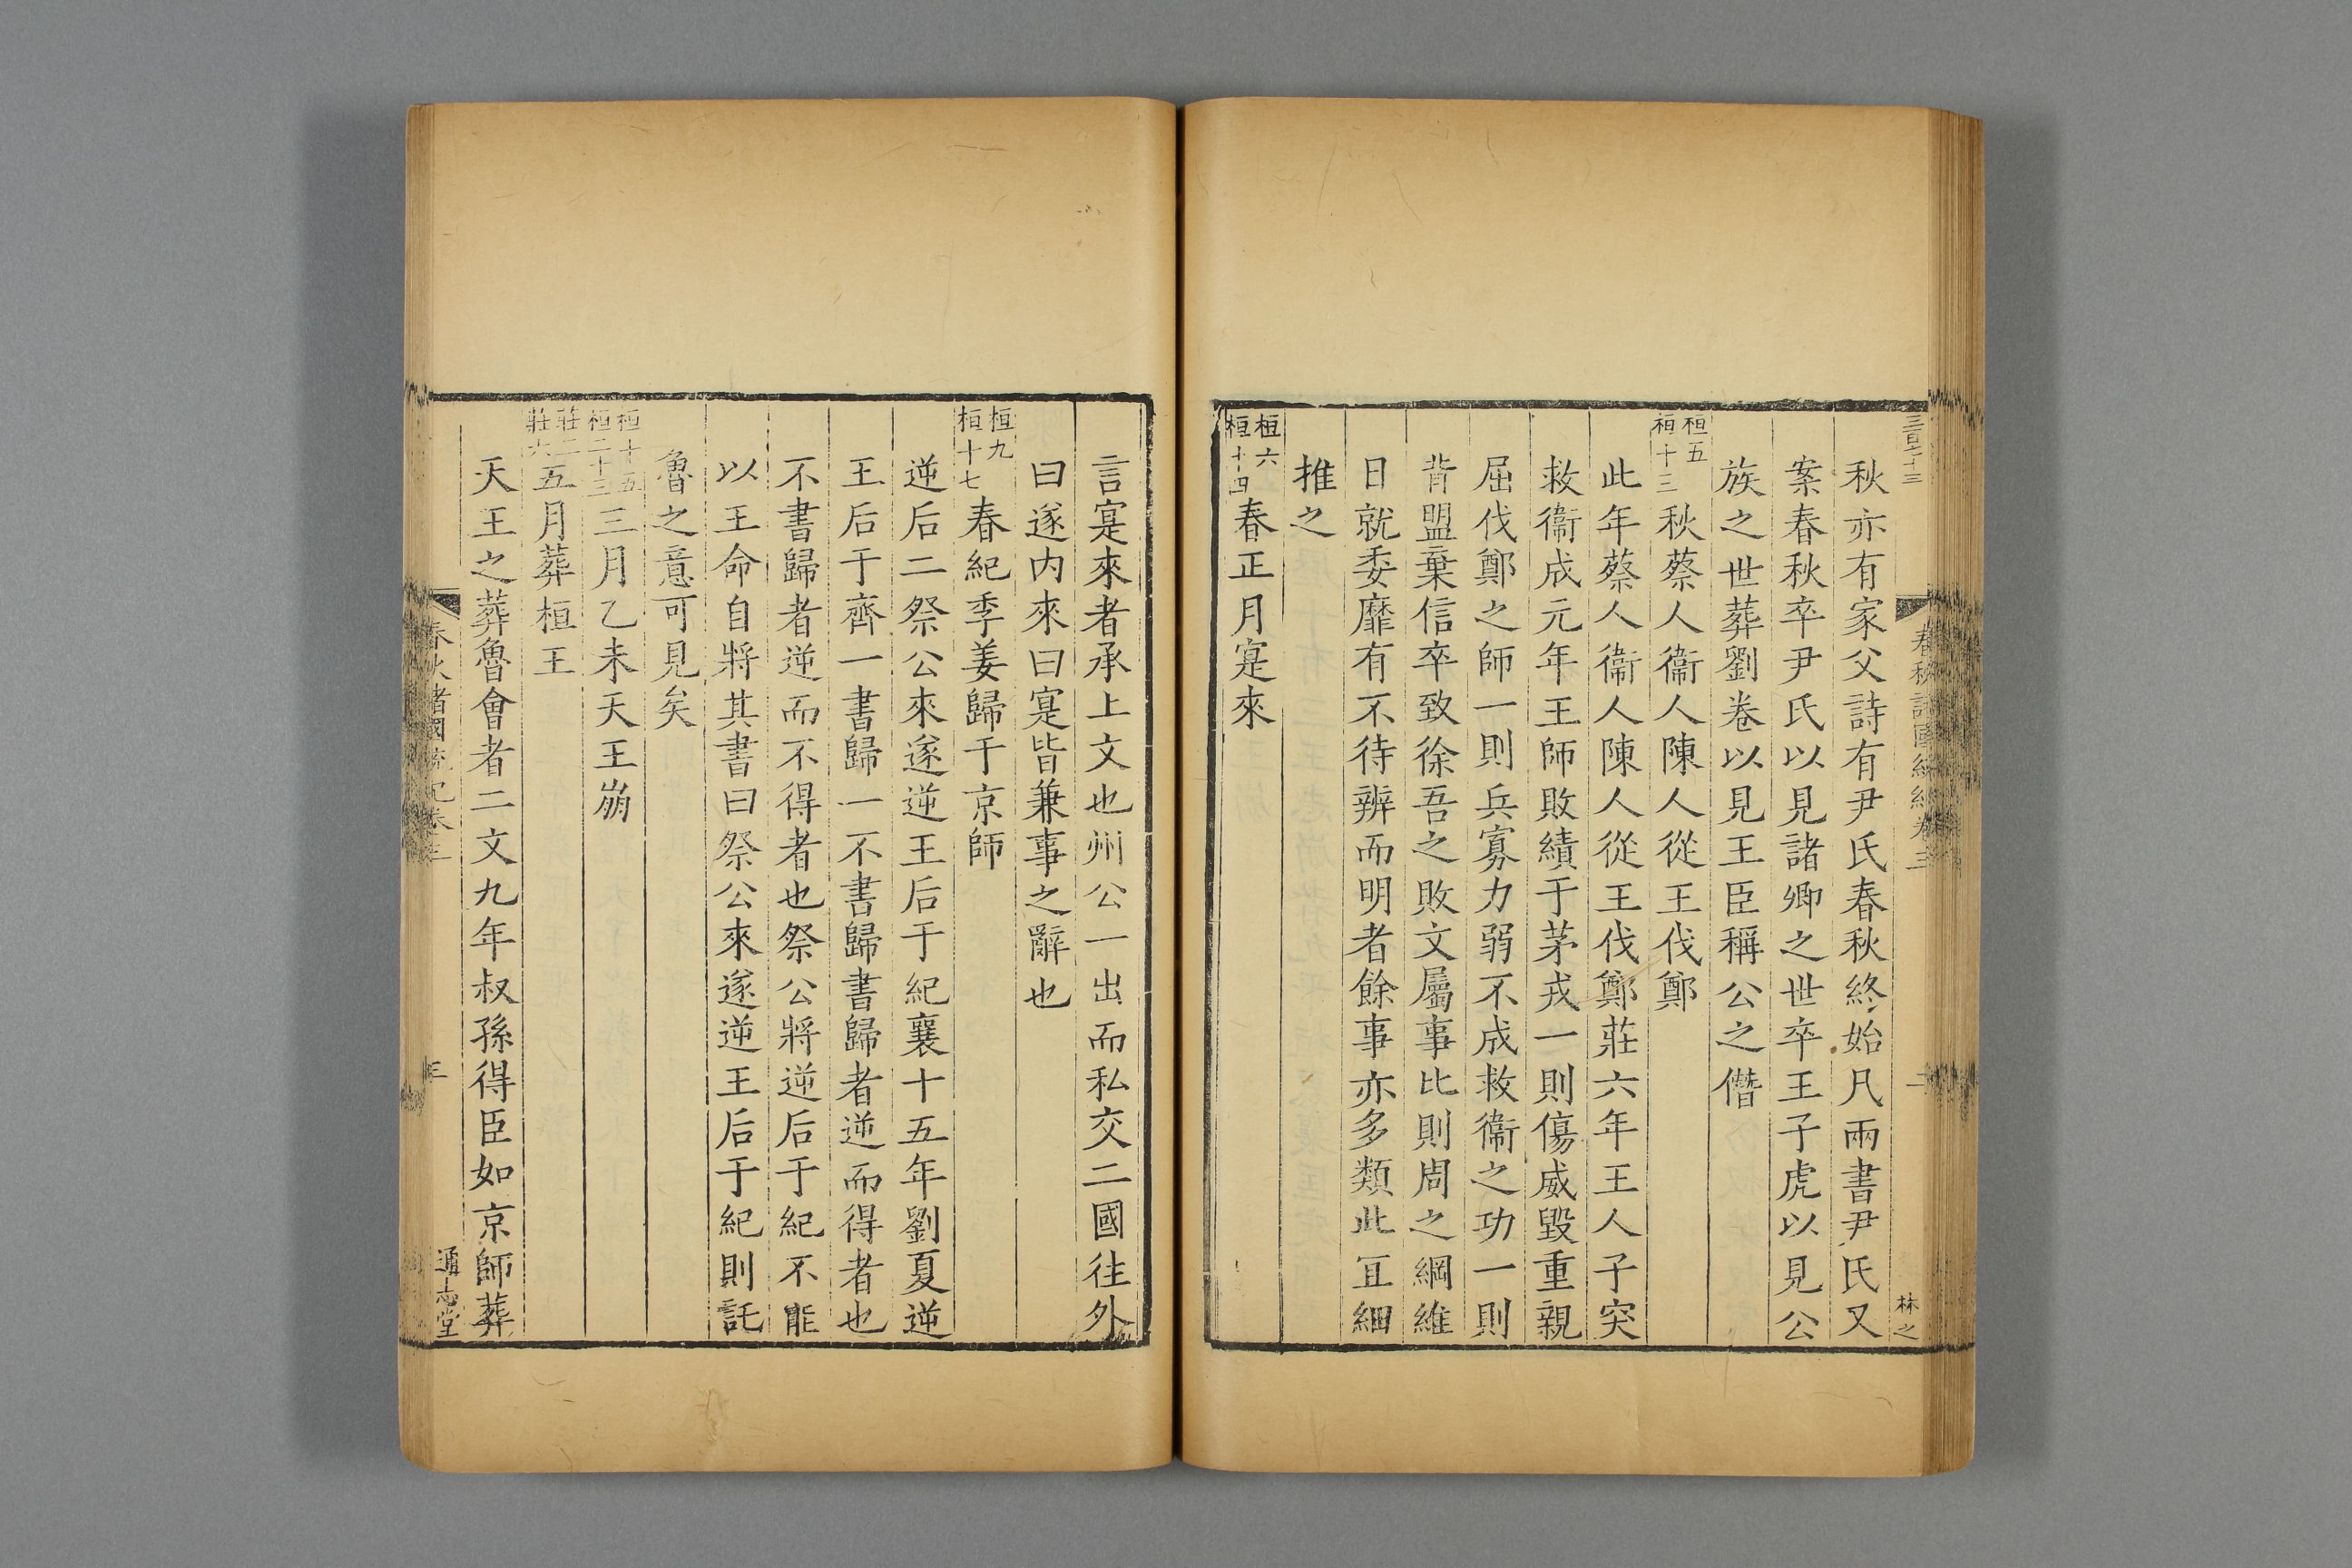 三百七十三
林之
秋亦有家父詩有尹氏春秋終始凡兩書尹氏又
案春秋卒尹氏以見諸卿之世卒王子虎以見公
族之世葬劉卷以見王臣稱公之僭
桓五
桓十三
秋蔡人衞人陳人從王伐鄭
此年蔡人衞人陳人從王伐鄭莊六年王人子突
救衞成元年王師敗績于茅戎一則傷威毀重親
屈伐鄭之師一則兵寡力弱不成救衞之功一則
背盟棄信卒致徐吾之敗文屬事比則周之綱維
日就委靡有不待辨而明者餘事亦多類此宜細
推之
桓六
桓十四
春正月寔來
言寔來者承上文也州公一出而私交二國往外
曰遂内來曰寔皆兼事之辭也
桓九
桓十七
春紀季姜歸于京師
逆后二祭公來遂逆王后于紀襄十五年劉夏逆
王后于齊一書歸一不書歸書歸者逆而得者也
不書歸者逆而不得者也祭公將逆后于紀不能
以王命自將其書曰祭公來遂逆王后于紀則託
魯之意可見矣
桓十五
桓二十三
三月乙未天王崩
莊三
莊六
五月葬桓王
天王之葬魯會者二文九年叔孫得臣如京師葬
春秋諸國統紀卷三
三
通志堂